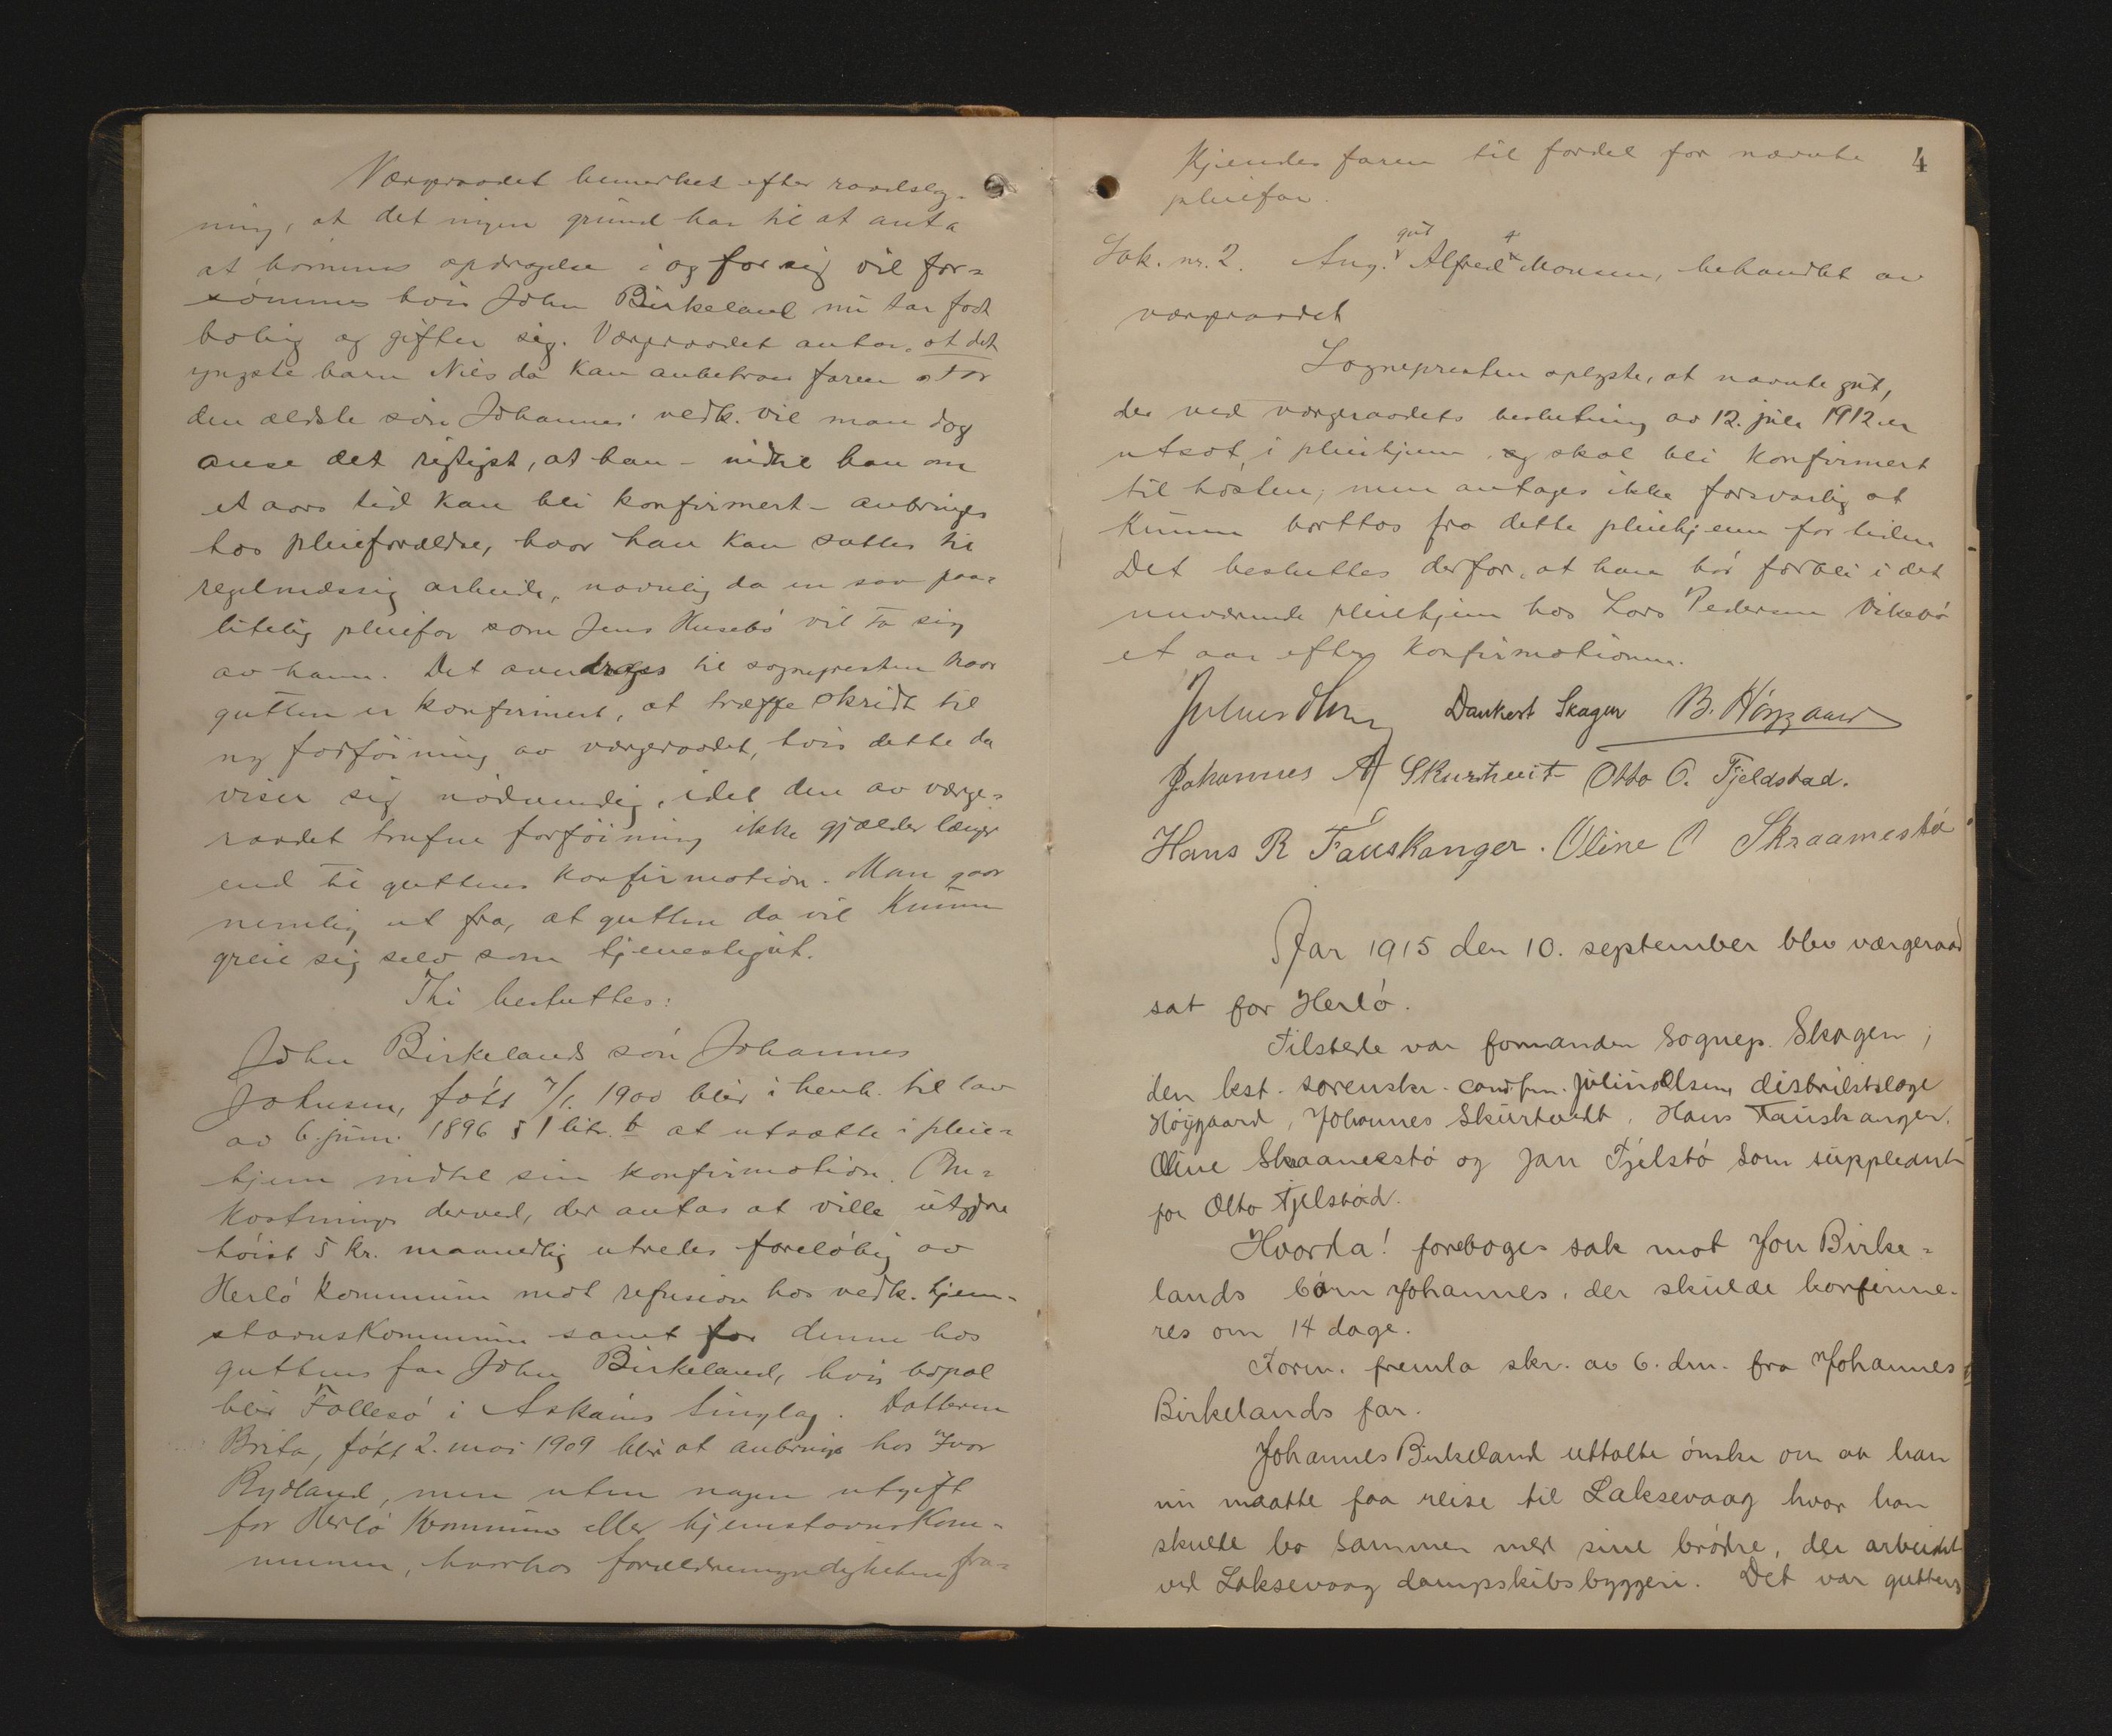 Værgeraadet bemerket efter raadslag-
ning, at det ingen grund har til at anta
at børnenes opdragelse i og for sig vil for-
sømmes hvis John Birkeland nu tar fast
bolig og gifter sig. Værgeraadet antar, at det
yngste barn Nils da kan anbetroes faren. For
den ældste søn Johannes' vedk. vil man dog
anse det rigtigst, at han - indtil han om
et aars tid kan bli konfirmert - anbringes
hos pleieforældre, hvor han kan sættes til
regelmæssig arbeide, navnlig da en saa paa-
litelig pleiefar som Jens Husebø vil ta sig
av ham. Det overdrages til sognepresten naar
gutten er konfirmert, at træffe skridt til
ny forføining av værgeraadet, hvis dette da
viser sig nødvendig, idet den av værge-
raadet trufne forføining ikke gjælder længer
end til guttens konfirmation. Man gaar
nemlig ut fra, at gutten da vil kunne
greie sig selv som tjenestegut.
Thi besluttes:
John Birkelands søn Johannes
Johnsen, født 7/1. 1900 blir i henh. til lov
av 6. juni 1896 § 1 litr. b at utsætte i pleie-
hjem indtil sin konfirmation. Om-
kostninger derved, der antas at ville utgjøre
høist 5 kr. maanedlig utredes foreløbig av
Herlø kommune mot refusion hos vedk. hjem-
stavnskommune samt for denne hos
guttens far John Birkeland, hvis bopæl
blir Follesø i Askøens tinglag. Datteren
Brita, født 2. mai 1909 blir at anbringe hos Ivar
Rydland, men uten nogen utgift
for Herlø kommune eller hjemstavnskom-
munen, hvorhos forældremyndigheten fra-
4
kjendes faren til fordel for nævnte
pleiefar.
Sak. nr. 2. Ang. gut Alfred Monsen, behandlet av
værgeraadet
Sognepresten oplyste, at nævnte gut,
der ved værgeraadets beslutning av 12. juli 1912 er
utsat i pleiehjem, og skal bli konfirmert
til høsten, men antages ikke forsvarlig at
kunne borttas fra dette pleiehjem for tiden
Det besluttes derfor, at han bør forbli i det
nuværende pleiehjem hos Lars Pedersen Vikebø
et aar efter konfirmationen.
Julius Olsen Dankert Skagen B. Høygaard
Johannes A Skurtveit Otto O. Fjeldstad.
Hans R Fauskanger. Oline O Skraamestø
Aar 1915 den 10. september blev værgeraad
sat for Herlø.
Tilstede var formanden sognep. Skagen,
den kst. sorenskr. cand. jur. Julius Olsen, distriktslæge
Høygaard, Johannes Skurtveit, Hans Fauskanger,
Oline Skraamestø og Jan Fjelstø som suppleant
for Otto Fjelstad.
Hvorda! foretoges sak mot Jon Birke-
lands barn Johannes, der skulde konfirme-
res om 14 dage.
Form. fremla skr. av 6. dm. fra Johannes
Birkelands far.
Johannes Birkeland uttalte ønske om at han
nu maatte faa reise til Laksevaag hvor han
skulde bo sammen med sine brødre, der arbeidet
ved Laksevaag dampskibsbyggeri. Det var guttens